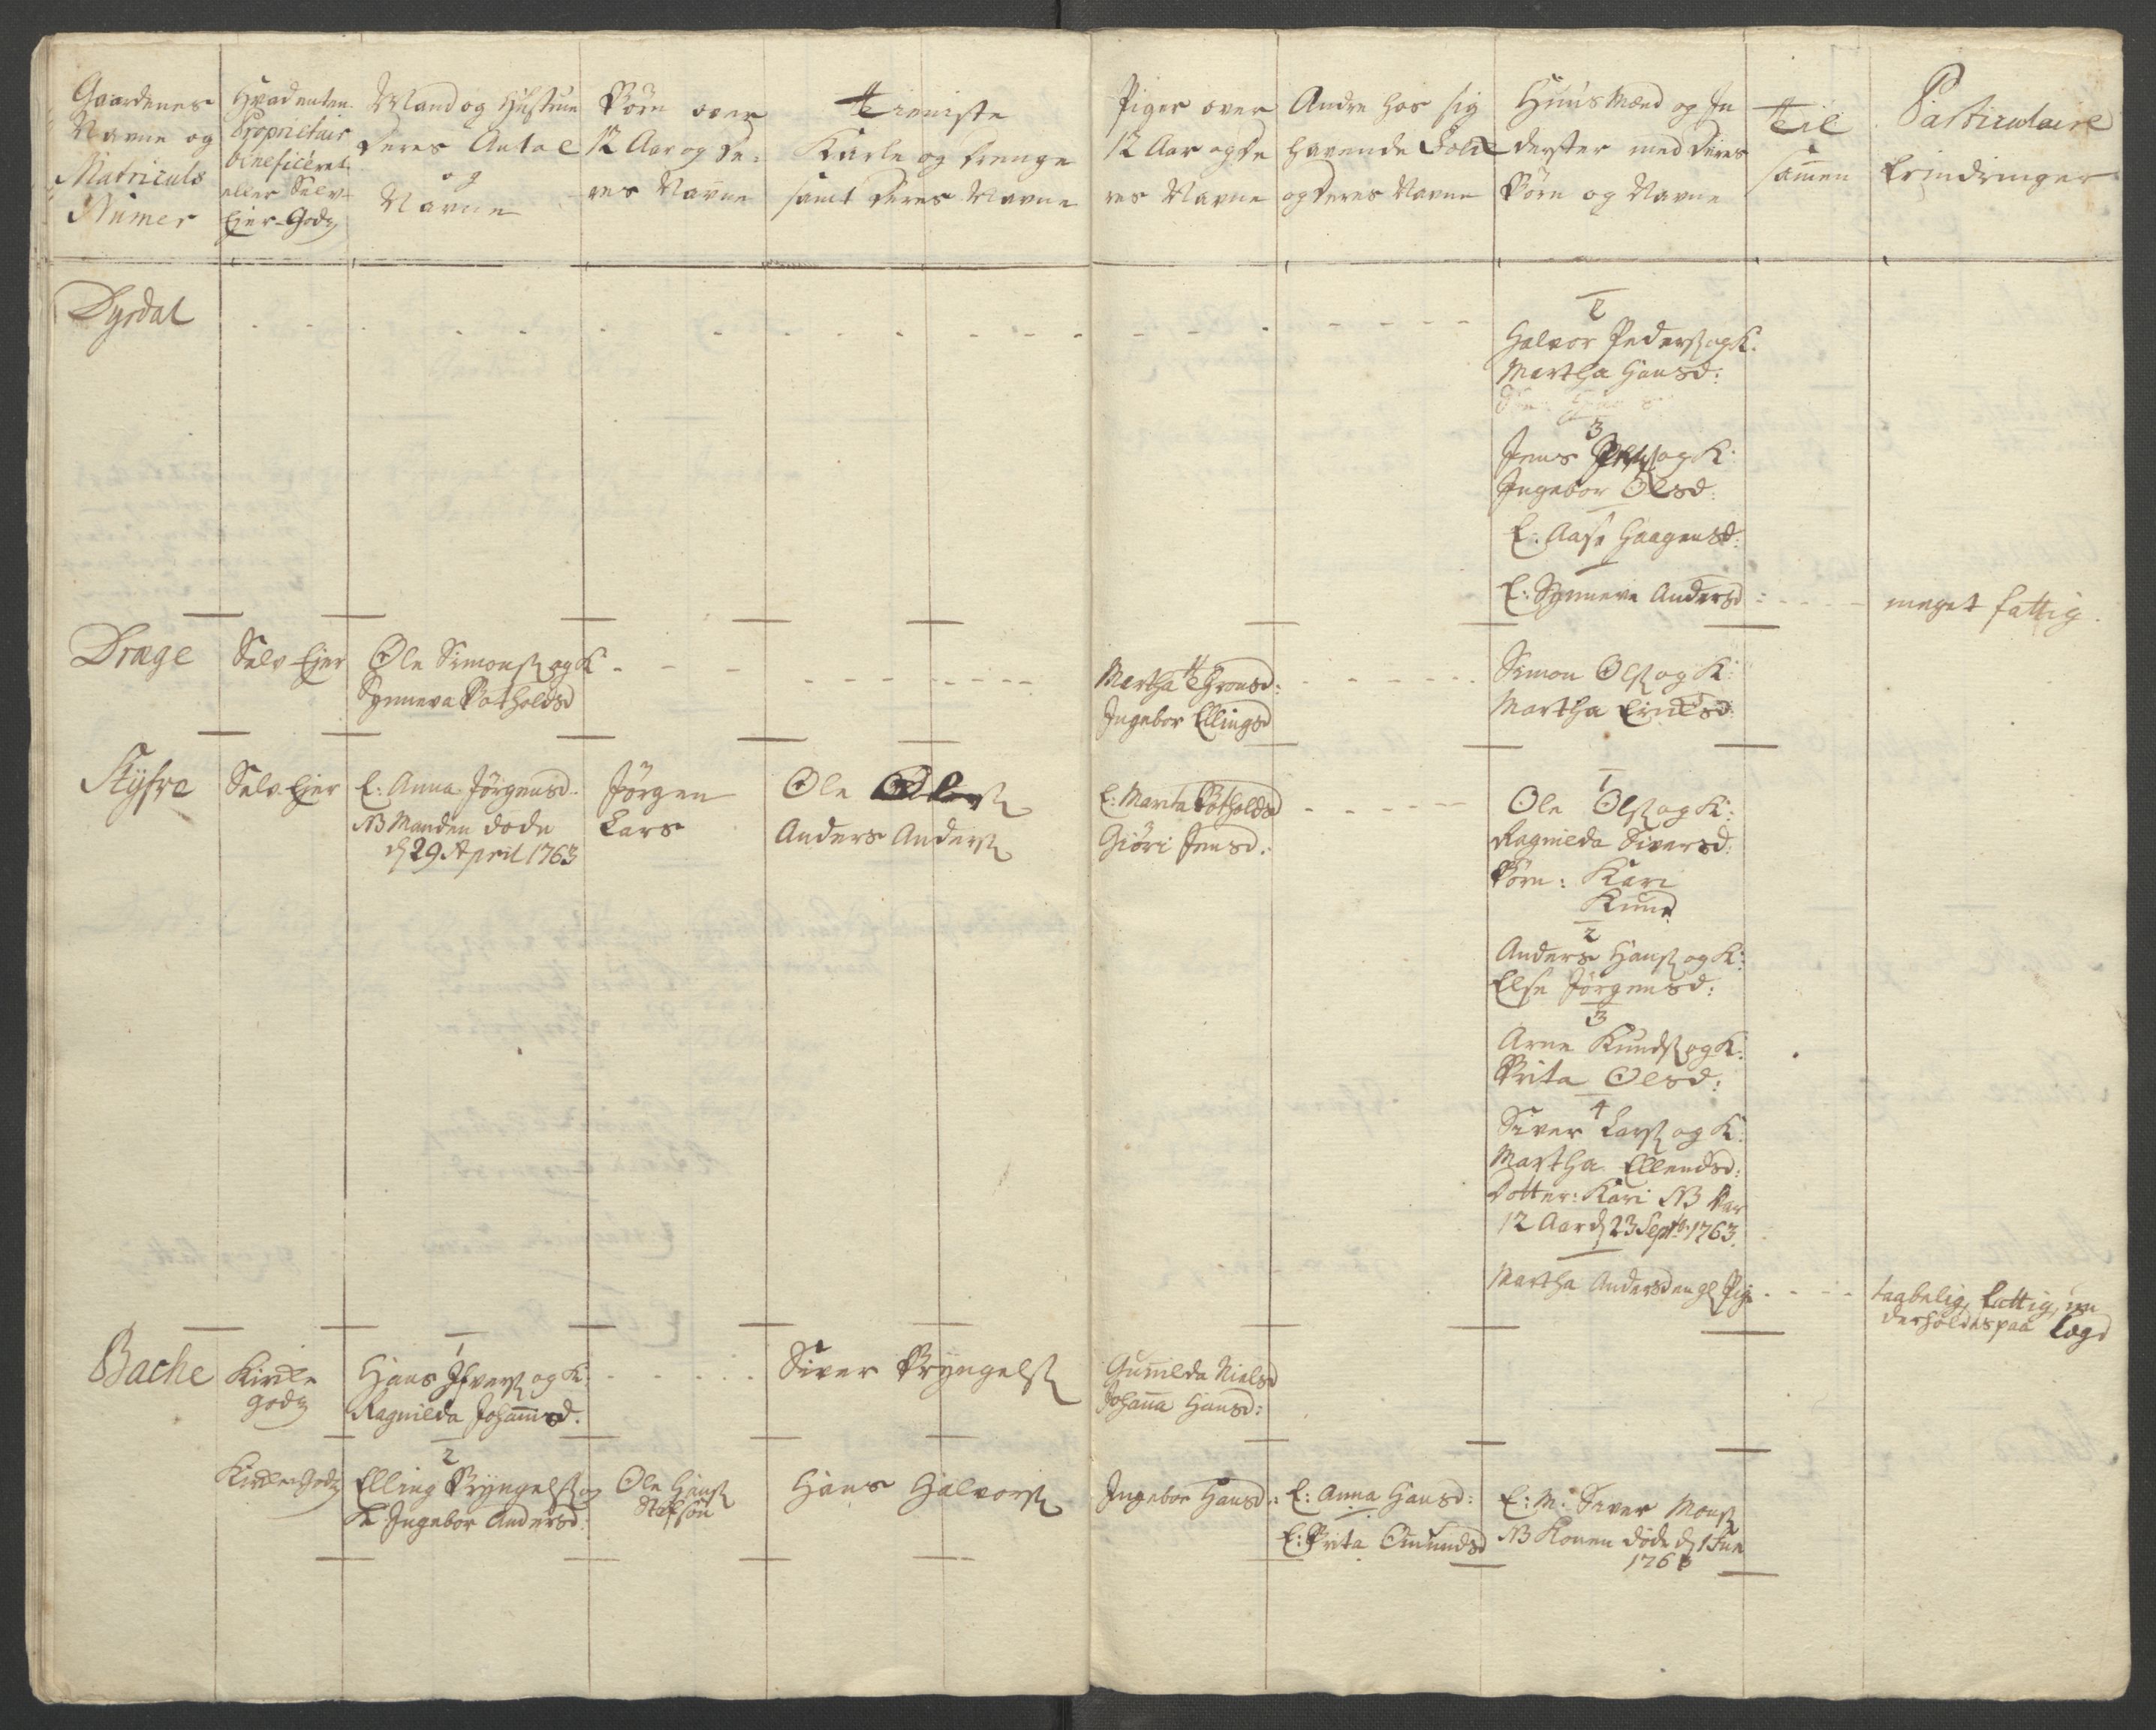 Gaardenes
Navne og
Matriculs
Numer
Hvad enten
Proprietair
beneficeret
eller Selv-
Ejer-Godz
Mand og Hustrue
Deres Antal
og
Navne
Börn over
12 Aar og De-
res Navne
Tieniste
Karle og Drenge
samt Deres Navne
Piger over
12 Aar og De
res Navne
Andre hos sig
havende Folck
og Deres Navne
Huus Mænd og In
derster med Deres
Börn og Navne
Til
samen
Particulaire
Erindringer
Dysdal
2
Halvor Peders: og K.
Martha Hansd:
3
Jens og K:
Ingebor Olsd:
E: Aase Haagensd:
E: Synneve Andersd
meget fattig.
Drage
Selv-Ejer
Ole Simons: og K
Synneva Botholdsd
Martha Thronsd:
Ingebor Ellingsd
Simon Ols: og K:
Martha Ericksd:
Styfre
Selv-Ejer
E: Anna Jörgensd:
NB Manden döde
d 29 April 1763
Jörgen
Lars
Ole
Anders Anders:
E: Marita Botholdsd
Giöri Jensd:
1
Ole Ols: og K:
Ragnilda Siversd:
Börn: Kari
Knud
2
Anders Hans: og K:
Else Jörgensd:
3
Arne Knuds: og K:
Brita Olsd:
4
Siver Lars: og K:
Martha Ellendsd:
Dotter: Kari NB var
12 Aar d 23 Sept: 1763.
Martha Andersd en gl Pige
taabelig, fattig, un
derholdes paa Lægd
Bache
Kircke
godz
1
Hans Ifvers: og K:
Ragnilda Johannsd.
Siver Bryngels:
Gunnilda Nielsd
Johanna Hansd:
Kircke-godz
2
Elling Bryngels: og
K Ingebor Andersd:
Ole Hans:
Stefsön
Hans Halvors:
Ingebor Hansd:
E: Anna Hansd:
E: Brita Omundsd
E: M: Siver Mons:
NB Konen döde d 1 Jun
176